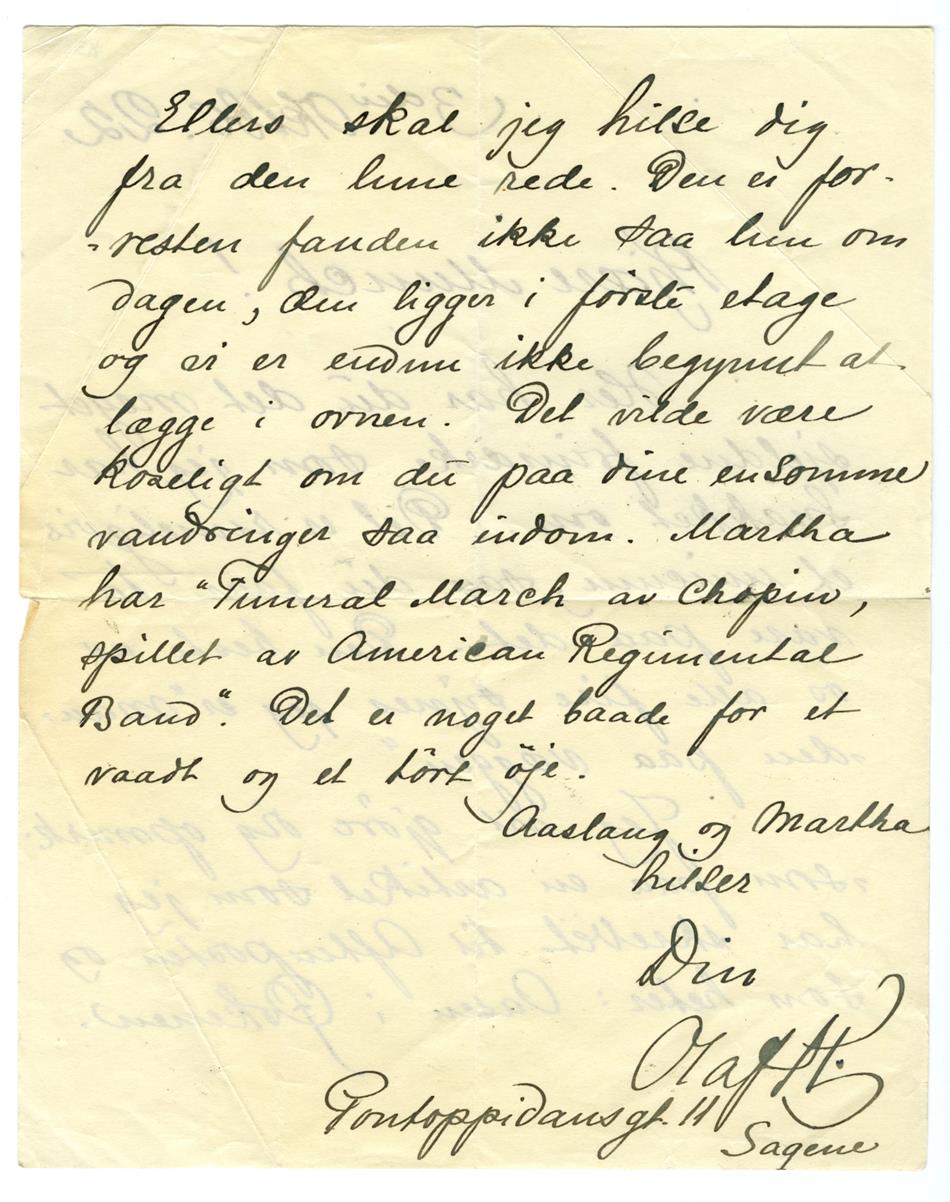 Ellers skal jeg hilse dig
fra den lune rede. Den er for-
-resten fanden ikke saa lun om
dagen, den ligger i første etage
og vi er endnu ikke begynnt at
lægge i ovnen. Det vilde være
koseligt om du paa dine ensomme
vandringer saa indom. Martha
har "Funeral March av Chopin,
spillet av American Regimental
Band". Det er noget baade for et
vaadt og et tørt øje.
Aaslaug og Martha
hilser
Din
Olaf H.
Pontoppidansgt. 11
Sagene